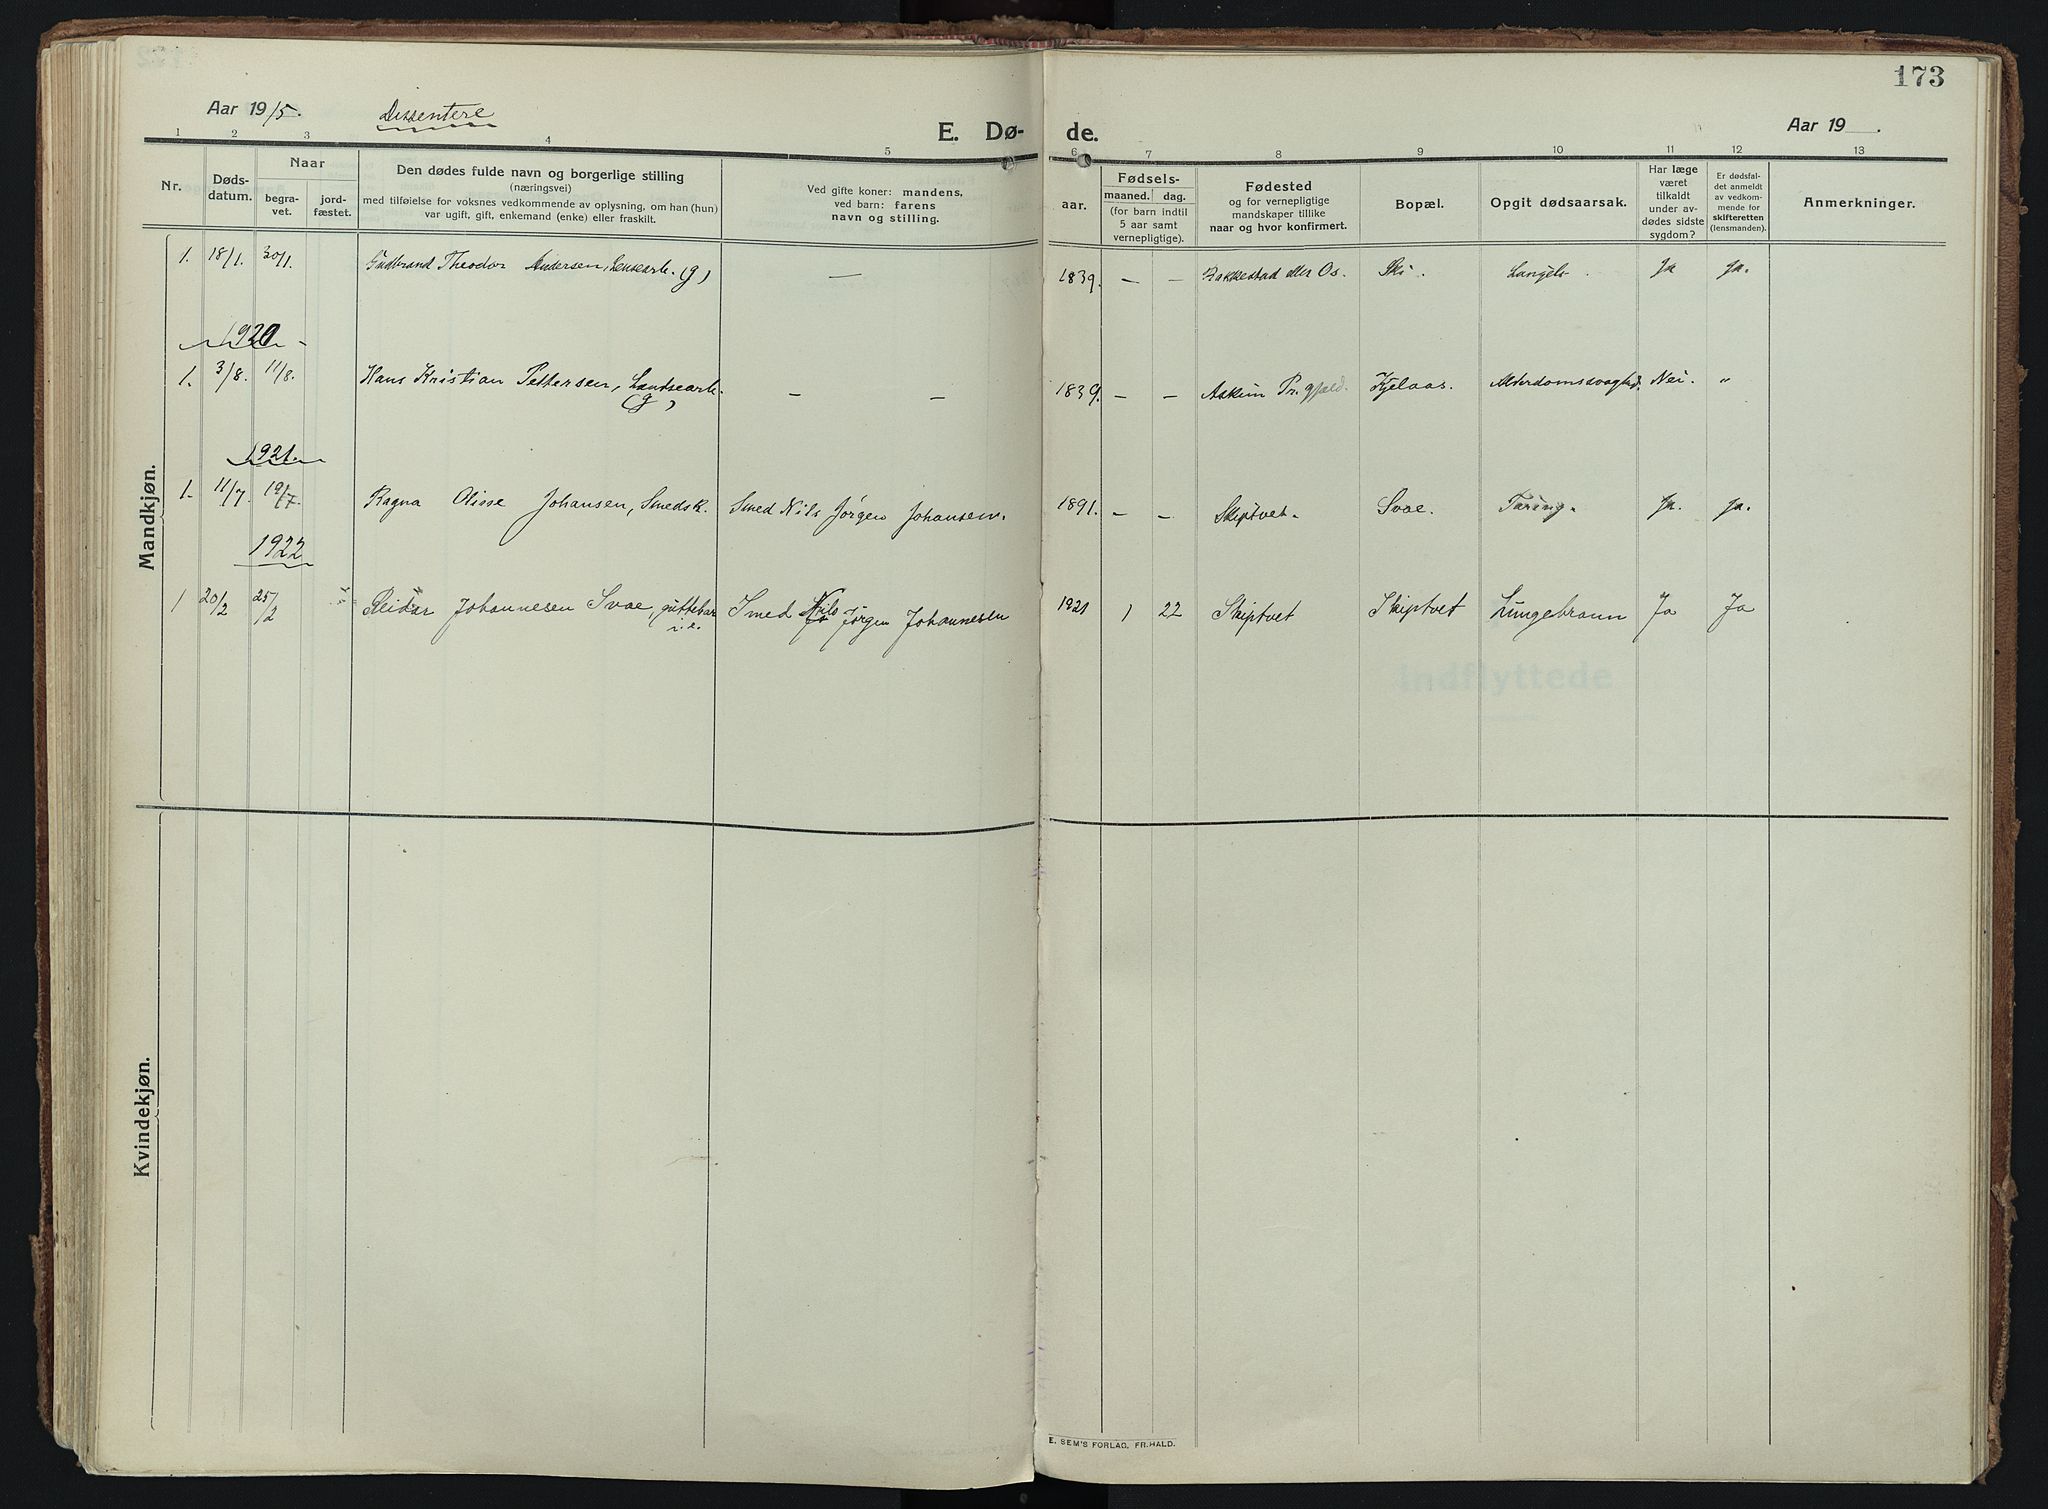 173
Aar 1915. Dissentere
E. Dø- de.
Aar 19 .
1 2 3 4 5 6 7 8 9 10 11 12 13
Nr.
Døds-
datum.
Naar
begra-
vet.
jord-
fæstet.
Den dødes fulde navn og borgerlige stilling
(næringsvei)
med tilføielse for voksnes vedkommende av oplysning, om han (hun)
var ugift, gift, enkemand (enke) eller fraskilt.
Ved gifte koner: mandens,
ved barn: farens
navn og stilling.
aar.
Fødsels-
maaned. dag.
(for barn indtil
5 aar samt
vernepligtige).
Fødested
og for vernepligtige
mandskaper tillike
naar og hvor konfirmert.
Bopæl.
Opgit dødsaarsak.
Har læge
været
tilkaldt
under av-
dødes sidste
sygdom?
Er dødsfal-
det anmeldt
av vedkom-
mende for
skifteretten
(lensmanden).
Anmerkninger.
Mandkjøn.
1. 18/1. 30/1. Gudbrand Theodor Andersen, (g) — 1839. — — Rakkestad eller Os. Ski. Ja Ja.
1920
1. 3/8. 11/8. Hans Kristian Pettersen, Landsearb. (g) — — 1839. — — Askim Pr.gjeld. Kjelaas. Nei. "
1921.
1. 11/7. 19/7. Ragna Olisse Johansen, Smedsk. Smed Nils Jørgen Johansen. 1891. — — Skiptvet. Svae. Taring. Ja. Ja.
1922
1 20/2 25/2 Reidar Johannesen Svae, guttebar i.e. Smed Nils Jørgen Johannesen 1921 1 22 Skiptvet Skiptvet Lungebraun Ja Ja
Indflyttede
Kvindekjøn.
E. SEM'S FORLAG, FR.HALD.